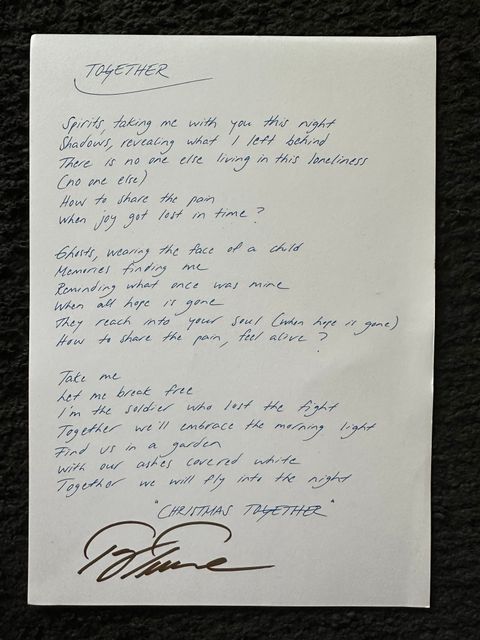 TOGETHER
Spirits, taking me with you this night
Shadows, revealing what I left behind
There is no one else living in this loneliness
(no one else)
How to share the pain
when joy got lost in time?
Ghosts, wearing the face of a child
Memories finding me
Reminding what once was mine
When all hope is gone
They reach into your soul (when hope is gone)
How to share the pain, feel alive?
Take me
Let me break free
I'm the soldier who lost the fight
Together we'll embrace the morning light
Find us in a garden
with our ashes covered white
Together we will fly into the night
"CHRISTMAS TOGETHER"